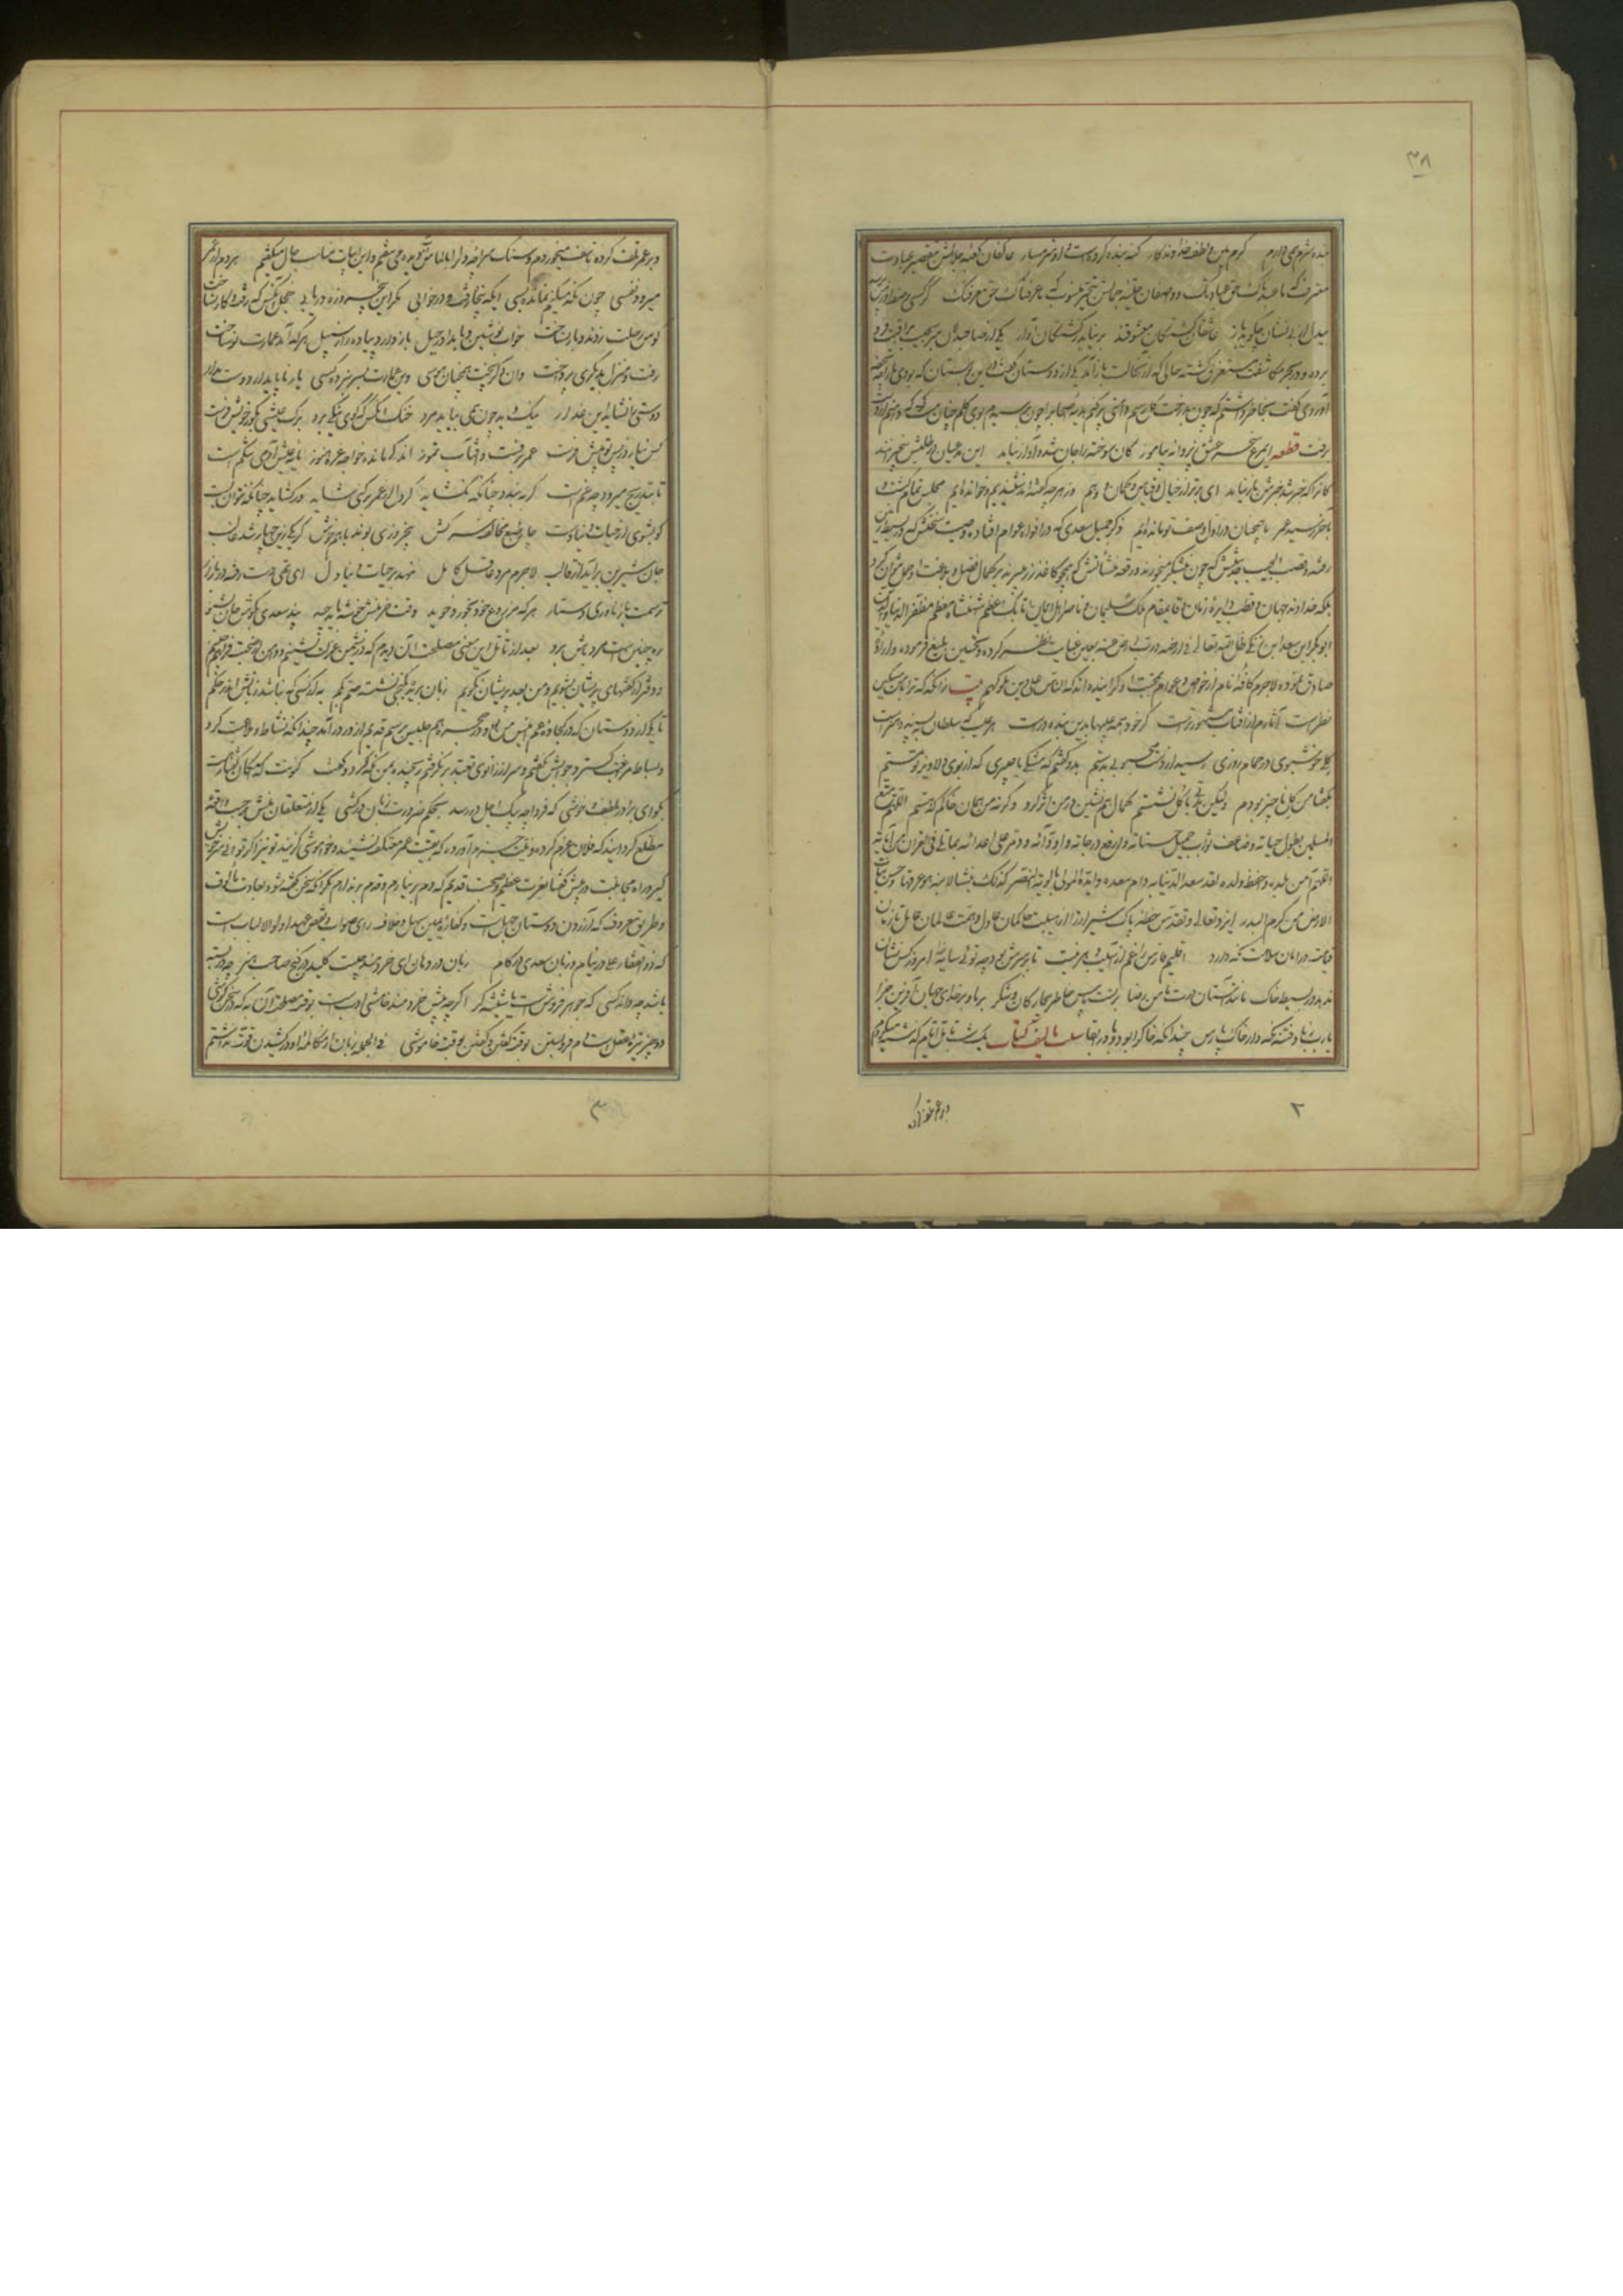 ۳۸
بنده شرم همی دارم کرم بین و لطف خداوندگار گنه بنده کرده است و او شرمسار عاکفان کعبه جلالش بتقصیر عبادت
معترف که ما عبدناک حق عبادتک و واصفان حلیه جمالش بتحیر منسوب که ما عرفناک حق معرفتک گر کسی وصف او ز من پرسد
بیدل از بی نشان چگوید باز عاشقان کشتگان معشوقند بر نیاید ز کشتگان آواز یکی از صاحبدلان سر بجیب مراقبت فرو
برده و در بحر مکاشفت مستغرق گشته حالی که از آن حالت باز آمد یکی از دوستان گفت ازین بوستان که بودی ما را چه تحفه
آوردی گفت بخاطر داشتم که چون بدرخت گل رسم دامنی پر کنم هدیه اصحاب را چون برسیدم بوی گلم چنان مست کرد که دامنم از دست
برفت قطعه ای مرغ سحر عشق ز پروانه بیاموز کان سوخته را جان شد و آواز نیامد این مدعیان در طلبش بیخبرانند
کانرا که خبر شد خبرش باز نیامد ای برتر از خیال و قیاس و گمان و وهم وز هر چه گفته اند و شنیدیم و خوانده ایم مجلس تمام گشت و
بآخر رسید عمر ما همچنان در اول وصف تو مانده ایم ذکر جمیل سعدی که در افواه عوام افتاده وصیت سخنش که در بسیط زمین
رفته و قصب الجیب حدیثش که چون نیشکر میخورند و رقعه منشآتش که همچو کاغذ زر میبرند بر کمال فضل و بلاغت او حمل نتوان کرد
بلکه خداوند جهان و قطب دایره زمان و قایمقام ملک سلیمان و ناصر اهل ایمان اتابک اعظم شهنشاه معظم مظفر الدنیا و الدین
ابو بکر ابن سعد ابن زنگی ظل الله تعالی فی ارضه رب ارض عنه بعین عنایت نظر کرده و تحسین بلیغ فرموده و ارادت
صادق نموده لاجرم کافه انام از خواص و عوام بمحبت او گراینده اند که الناس علی دین ملوکهم بیت زانگه که ترا بر من مسکین
نظر است آثارم از آفتاب مشهورتر است گر خود همه عیبها بدین بنده در است هر عیب که سلطان بپسندد هنر است
گلی خوشبوی در حمام روزی رسید از دست محبوبی بدستم بدو گفتم که مشکی یا عبیری که از بوی دلاویز تو مستم
بگفتا من گلی ناچیز بودم ولیکن مدتی با گل نشستم کمال همنشین در من اثر کرد و گرنه من همان خاکم که هستم اللهم متع
المسلمین بطول حیاته و ضاعف ثواب جمیل حسناته و ارفع درجاته و اودائه و دمر علی اعدائه بما تلی فی القران من آیاته
اللهم آمن بلده و احفظ ولده لقد سعد الدنیا به دام سعده و ایده المولی بالویه النصر کذلک ینشا لینه هو عرقها و حسن نبات
الارض من کرم البذر ایزد تعالی و تقدس خطه پاک شیراز را بهیبت حاکمان عادل و همت عالمان عامل تا زمان
قیامت در امان سلامت نگه دارد اقلیم فارس را غم از آسیب دهر نیست تا بر سرش بود چو توئی سایه خدا امروز کس نشان
ندهد در بسیط خاک مانند آستان درت مامن رضا بر تست پاس خاطر بیچارگان و شکر بر ما و بر خدای جهان آفرین جزا
یا رب ز باد فتنه نگه دار خاک پارس چندانکه خاک را بود و باد را بقا سبب تالیف کتاب یک شب تامل ایام گذشته میکردم
۲
و بر عمر تلف کرده
و بر عمر تلف کرده تاسف میخوردم و سنگ سراچه دل را بالماس آب دیده می سفتم و این ابیات مناسب حال میگفتم هر دم از عمر
میرود نفسی چون نگه میکنم نمانده بسی ایکه پنجاه رفت و در خوابی مگر این پنج روزه دریابی خجل آنکس که رفت و کار نساخت
کوس رحلت زدند و بار نساخت خواب نوشین بامداد رحیل باز دارد پیاده را ز سبیل هر که آمد عمارت نو ساخت
رفت و منزل بدیگری پرداخت وان دگر پخت همچنان هوسی وین عمارت بسر نبرد کسی یار ناپایدار دوست مدار
دوستی را نشاید این غدار نیک و بد چون همی بباید مرد خنک آنکس که گوی نیکی برد برگ عیشی بگور خویش فرست
کس نیارد ز پس تو پیش فرست عمر برفست و آفتاب تموز اندکی مانده خواجه غره هنوز مایه عیش آدمی شکم است
تا بتدریج میرود چه غم است گر به بندد چنانکه نگشاید گر دل از عمر برکنی شاید ور گشاید چنانکه نتوان بست
گو بشوی از حیات دنیا دست چار طبع مخالف سرکش پنجروزی بوند با هم خوش گر یکی زین چهار شد غالب
جان شیرین برآید از قالب لاجرم مرد عاقل کامل ننهد بر حیات دنیا دل ای تهی دست رفته در بازار
ترسمت باز ناوری دستار هر که مزروع خود بخورد بخوید وقت خرمنش خوشه باید چید پند سعدی بگوش جان بشنو
ره چنین است مرد باش و برو بعد از تامل این معنی مصلحت آن دیدم که در نشیمن عزلت نشینم و دامن از صحبت فراهم چینم
و دفتر از گفتهای پریشان بشویم و من بعد پریشان نگویم زبان بریده بکنجی نشسته صم بکم به از کسی که نباشد زبانش اندر حکم
تا یکی از دوستان که در کجاوه غم انیس من بودی و در حجره هم جلیس برسم قدیم از در درآمد چندانکه نشاط و ملاعبت کرد
و بساط مداعبت گسترد جوابش نگفتم و سر از زانوی تعبد بر نگرفتم رنجیده بمن نگه کرد و گفت کنونت که امکان گفتار هست
بگو ای برادر بلطف و خوشی که فردا چو پیک اجل در رسد بحکم ضرورت زبان در کشی یکی از متعلقان منش بر حسب واقعه
مطلع گردانید که فلان عزم کرده و نیت جزم آورده که بقیت عمر معتکف نشیند و خاموشی گزیند تو نیز اگر توانی سر خویش
گیر و راه مجانبت در پیش گفتا بعزت عظیم و صحبت قدیم که دم بر نیارم و قدم برندارم مگر آنگه که سخن گفته شود بعادت مالوف
و طریق معروف که آزردن دوستان جهل است و کفاره یمین سهل و خلاف رای صواب و نقض عهد اولو الالباب است
که ذو الفقار علی در نیام و زبان سعدی در کام زبان در دهان ای خردمند چیست کلید در گنج صاحب هنر چو در بسته
باشد چه داند کسی که جوهر فروش است یا شیشه گر اگر چه پیش خردمند خامشی ادب است بوقت مصلحت آن به که در سخن کوشی
دو چیز تیره عقل است دم فرو بستن بوقت گفتن و گفتن بوقت خاموشی فی الجمله زبان از مکالمه او در کشیدن قوت نداشتم
۳